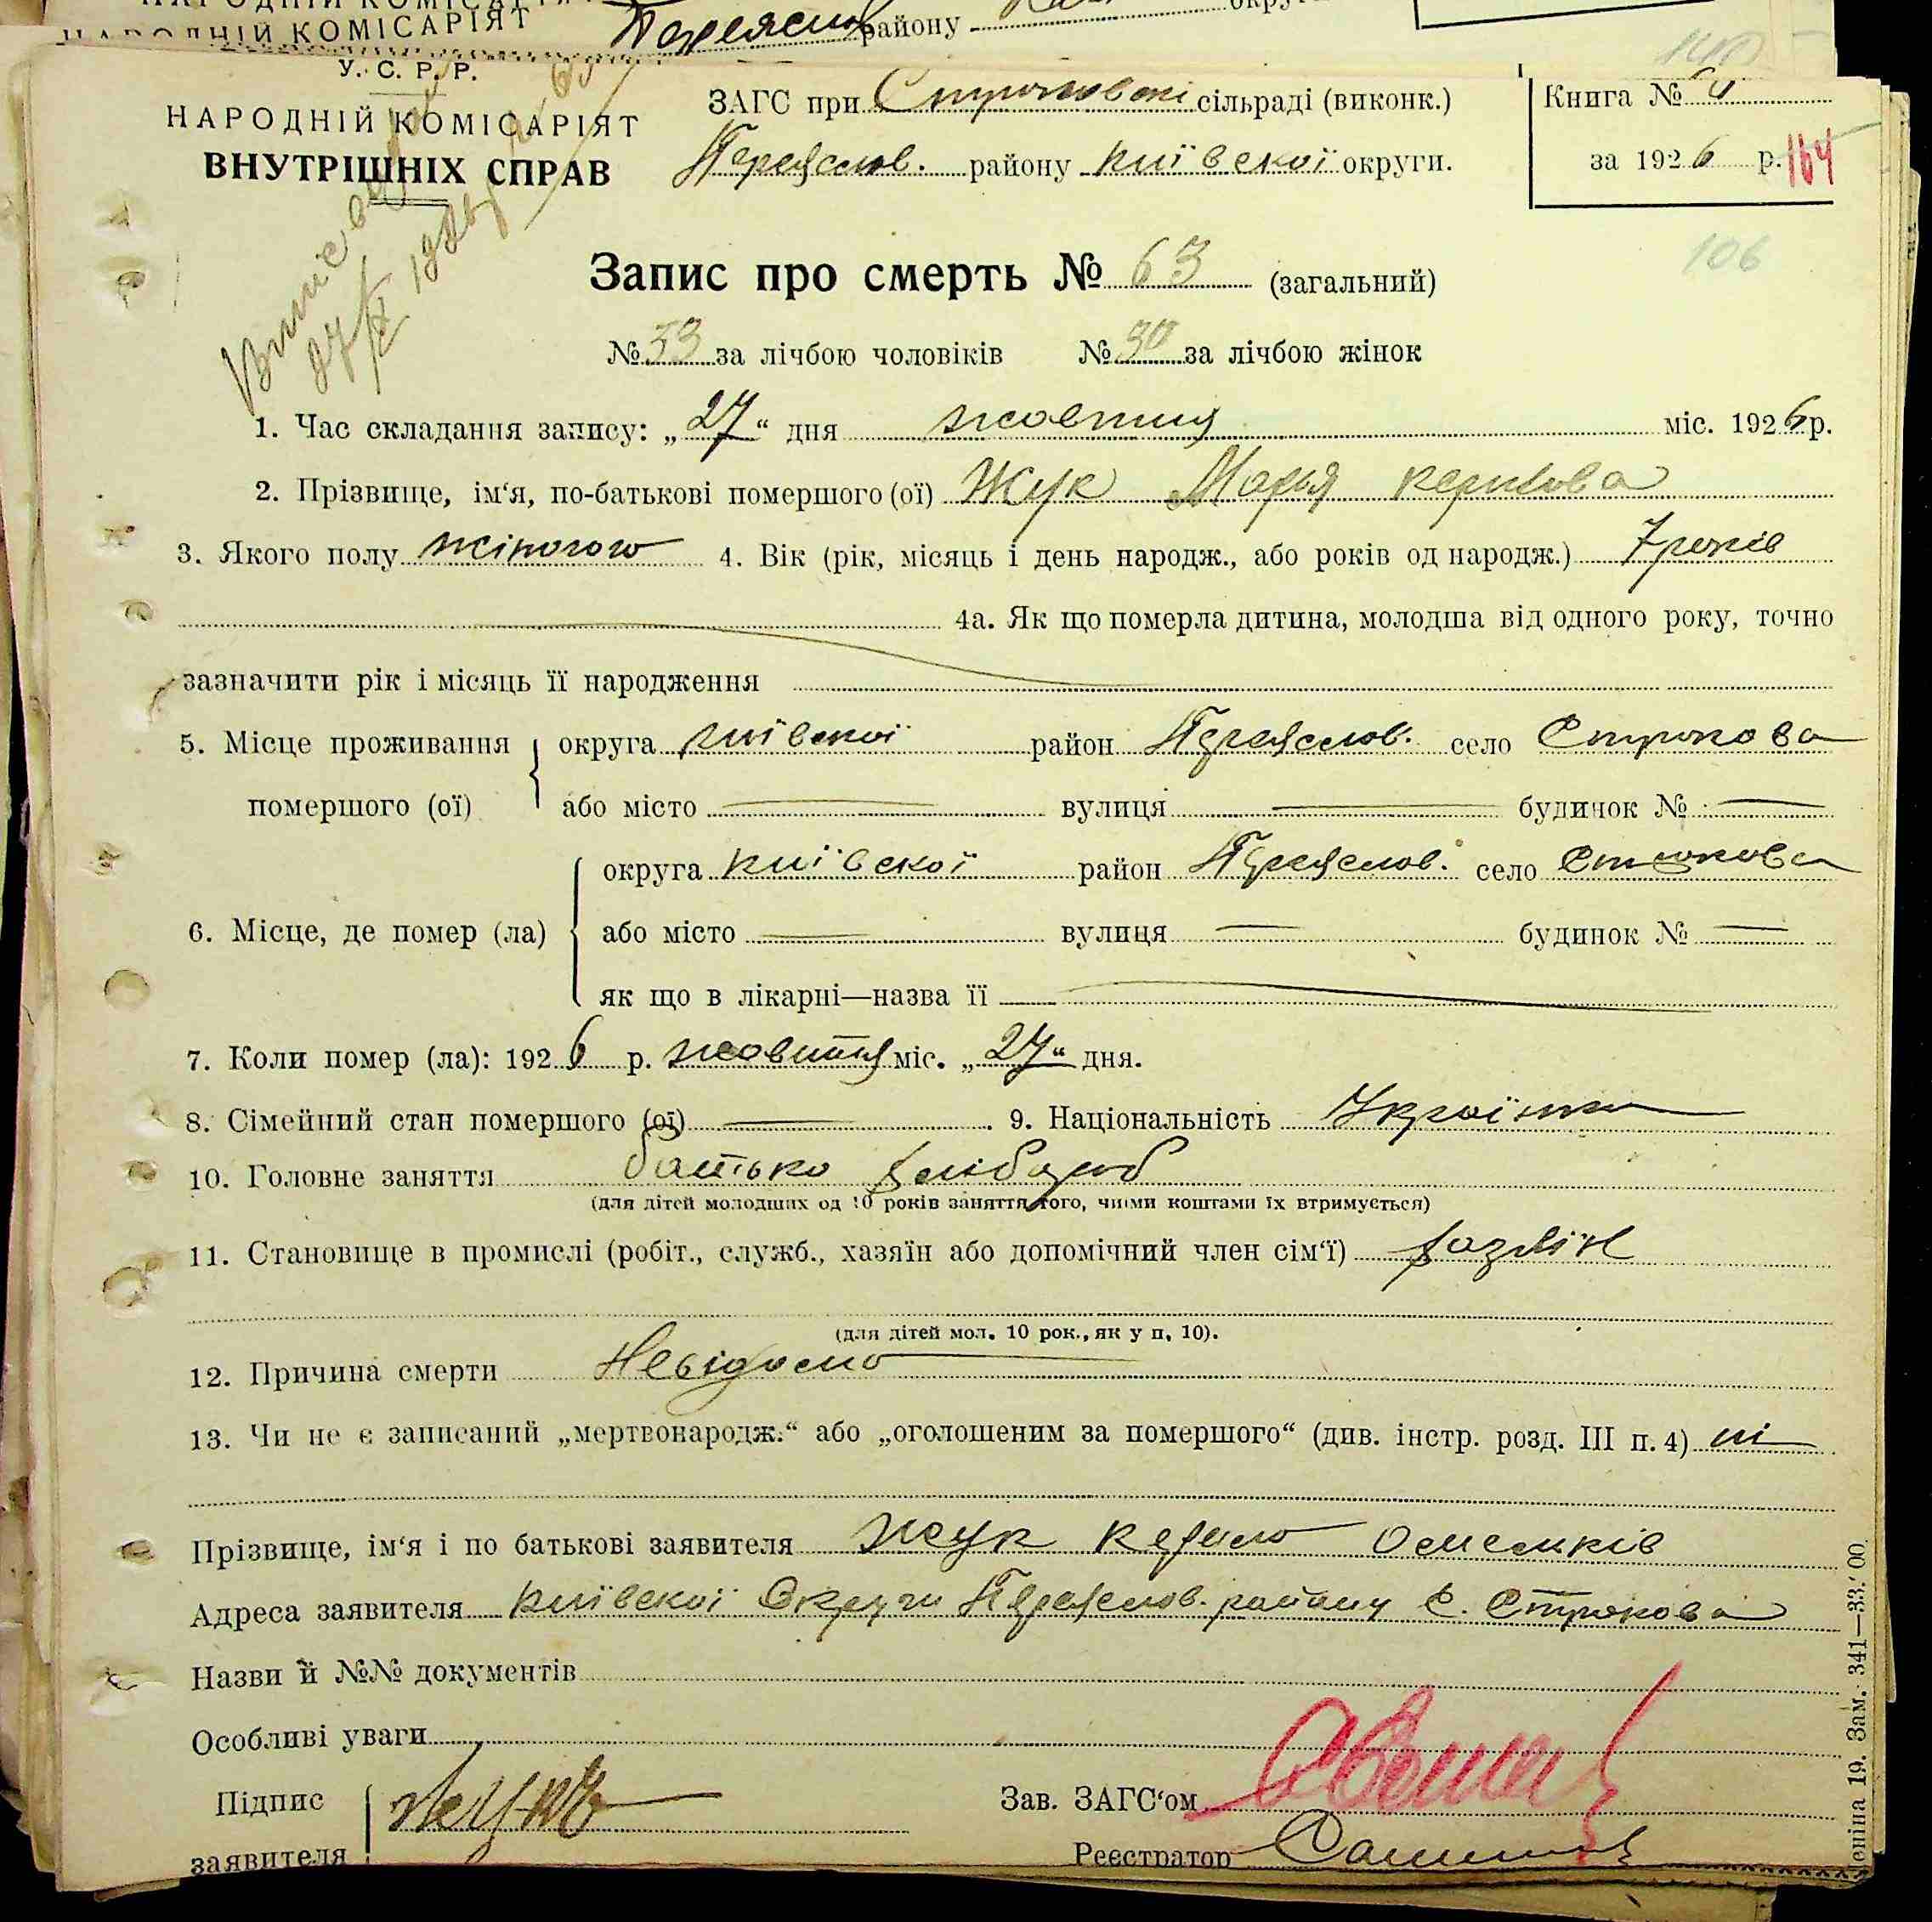 НАРОДНІЙ КОМІСАРІЯТ
району
У. С. Р. Р.
НАРОДНІЙ КОМІСАРІЯТ
ВНУТРІШНІХ СПРАВ
ЗАГС при сільраді (виконк.)
Переяслов. району Київської округи.
Книга №
за 1926 р. 164
106
Запис про смерть № 63 (загальний)
№ 33 за лічбою чоловіків № 30 за лічбою жінок
1. Час складання запису: „27“ дня жовтня міс. 1926 р.
2. Прізвище, ім‘я, по-батькові помершого (ої) Жук Марья
3. Якого полу жіного 4. Вік (рік, місяць і день народж., або років од народж.) 7 років
4а. Як що померла дитина, молодша від одного року, точно
зазначити рік і місяць її народження
5. Місце проживання округа Київскої район Переяслов. село Строкова
помершого (ої) або місто — вулиця — будинок № —
6. Місце, де помер (ла) округа Київскої район Переяслов. село Строкова
або місто — вулиця — будинок № —
як що в лікарні—назва її —
7. Коли помер (ла): 1926 р. жовтня міс. „27“ дня.
8. Сімейний стан помершого (ої) — . 9. Національність Українка
10. Головне заняття батько хлібороб
(для дітей молодших од 10 років заняття того, чиїми коштами їх втримується)
11. Становище в промислі (робіт., служб., хазяїн або допомічний член сім‘ї) хазяїн
(для дітей мол. 10 рок., як у п. 10).
12. Причина смерти Невідомо
13. Чи не є записаний „мертвонародж.“ або „оголошеним за помершого“ (див. інстр. розд. III п. 4) ні
Прізвище, ім‘я і по батькові заявителя Жук
Адреса заявителя Київскої Округи Переяслов. району с. Строкова
Назви й №№ документів
Особливі уваги
Підпис
заявителя
Зав. ЗАГС‘ом
Реєстратор